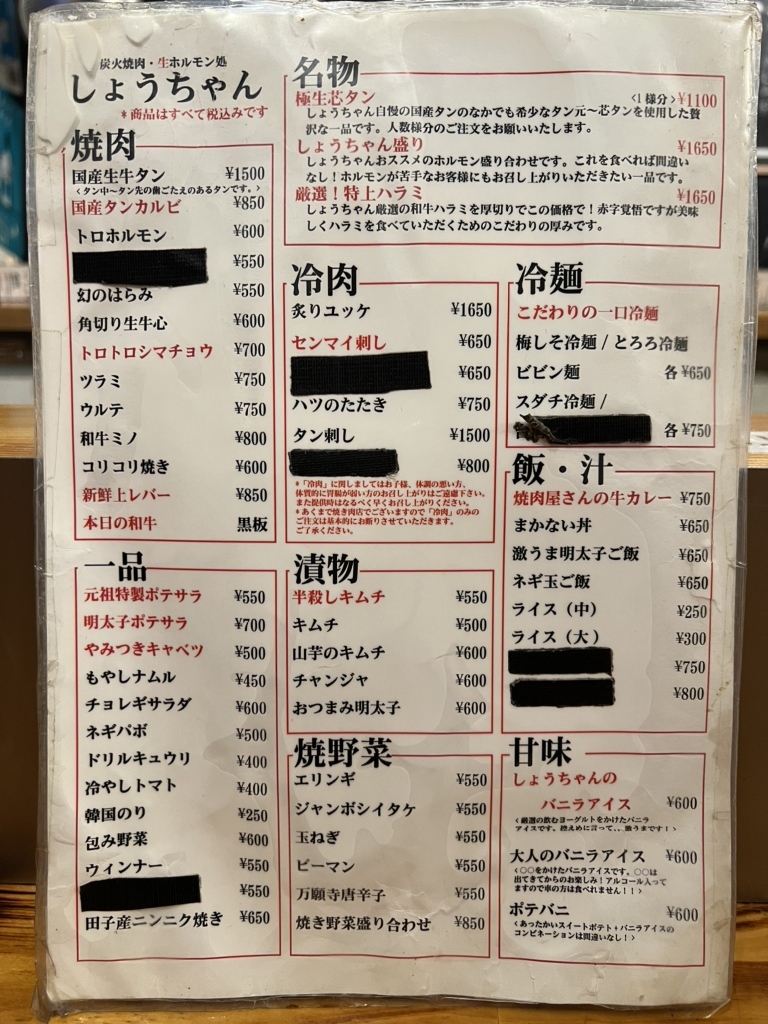 炭火焼肉・生ホルモン処
しょうちゃん
*商品はすべて税込みです
焼肉
国産生牛タン ¥1500
〈タン中〜タン先の歯ごたえのあるタンです。〉
国産タンカルビ ¥850
トロホルモン ¥600
¥550
幻のはらみ ¥550
角切り生牛心 ¥600
トロトロシマチョウ ¥700
ツラミ ¥750
ウルテ ¥750
和牛ミノ ¥800
コリコリ焼き ¥600
新鮮上レバー ¥850
本日の和牛 黒板
名物
極生芯タン 〈1様分〉¥1100
しょうちゃん自慢の国産タンのなかでも希少なタン元〜芯タンを使用した贅
沢な一品です。人数様分のご注文をお願いいたします。
しょうちゃん盛り ¥1650
しょうちゃんおススメのホルモン盛り合わせです。これを食べれば間違い
なし!ホルモンが苦手なお客様にもお召し上がりいただきたい一品です。
厳選!特上ハラミ ¥1650
しょうちゃん厳選の和牛ハラミを厚切りでこの価格で!赤字覚悟ですが美味
しくハラミを食べていただくためのこだわりの厚みです。
冷肉
炙りユッケ ¥1650
センマイ刺し ¥650
¥650
ハツのたたき ¥750
タン刺し ¥1500
¥800
*「冷肉」に関しましてはお子様、体調の悪い方、
体質的に胃腸が弱い方のお召し上がりはご遠慮下さい。
また提供時はなるべく早くお召し上がりください。
*あくまで焼き肉店でございますので「冷肉」のみの
ご注文は基本的にお断りさせていただきます。
ご了承ください。
冷麺
こだわりの一口冷麺
梅しそ冷麺 / とろろ冷麺
ビビン麺 各¥650
スダチ冷麺 /
各¥750
飯・汁
焼肉屋さんの牛カレー ¥750
まかない丼 ¥650
激うま明太子ご飯 ¥650
ネギ玉ご飯 ¥650
ライス(中) ¥250
ライス(大) ¥300
¥750
¥800
一品
元祖特製ポテサラ ¥550
明太子ポテサラ ¥700
やみつきキャベツ ¥500
もやしナムル ¥450
チョレギサラダ ¥600
ネギパボ ¥500
ドリルキュウリ ¥400
冷やしトマト ¥400
韓国のり ¥250
包み野菜 ¥600
ウィンナー ¥550
¥550
田子産ニンニク焼き ¥650
漬物
半殺しキムチ ¥550
キムチ ¥500
山芋のキムチ ¥600
チャンジャ ¥600
おつまみ明太子 ¥600
焼野菜
エリンギ ¥550
ジャンボシイタケ ¥550
玉ねぎ ¥550
ピーマン ¥550
万願寺唐辛子 ¥550
焼き野菜盛り合わせ ¥850
甘味
しょうちゃんの
バニラアイス ¥600
〈厳選の飲むヨーグルトをかけたバニラ
アイスです。控えめに言って、、、激うまです!〉
大人のバニラアイス ¥600
〈〇〇をかけたバニラアイスです。〇〇は
出てきてからのお楽しみ!アルコール入って
ますので車の方は食べれません!!〉
ポテバニ ¥600
〈あったかいスイートポテト+バニラアイスの
コンビネーションは間違いなし!〉